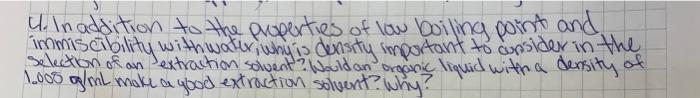 4. In addition to the properties of low boiling point and
immiscibility with water, why is density important to consider in the
selection of an extraction solvent? Would an organic liquid with a density of
1.005 g/mL make a good extraction solvent? Why?